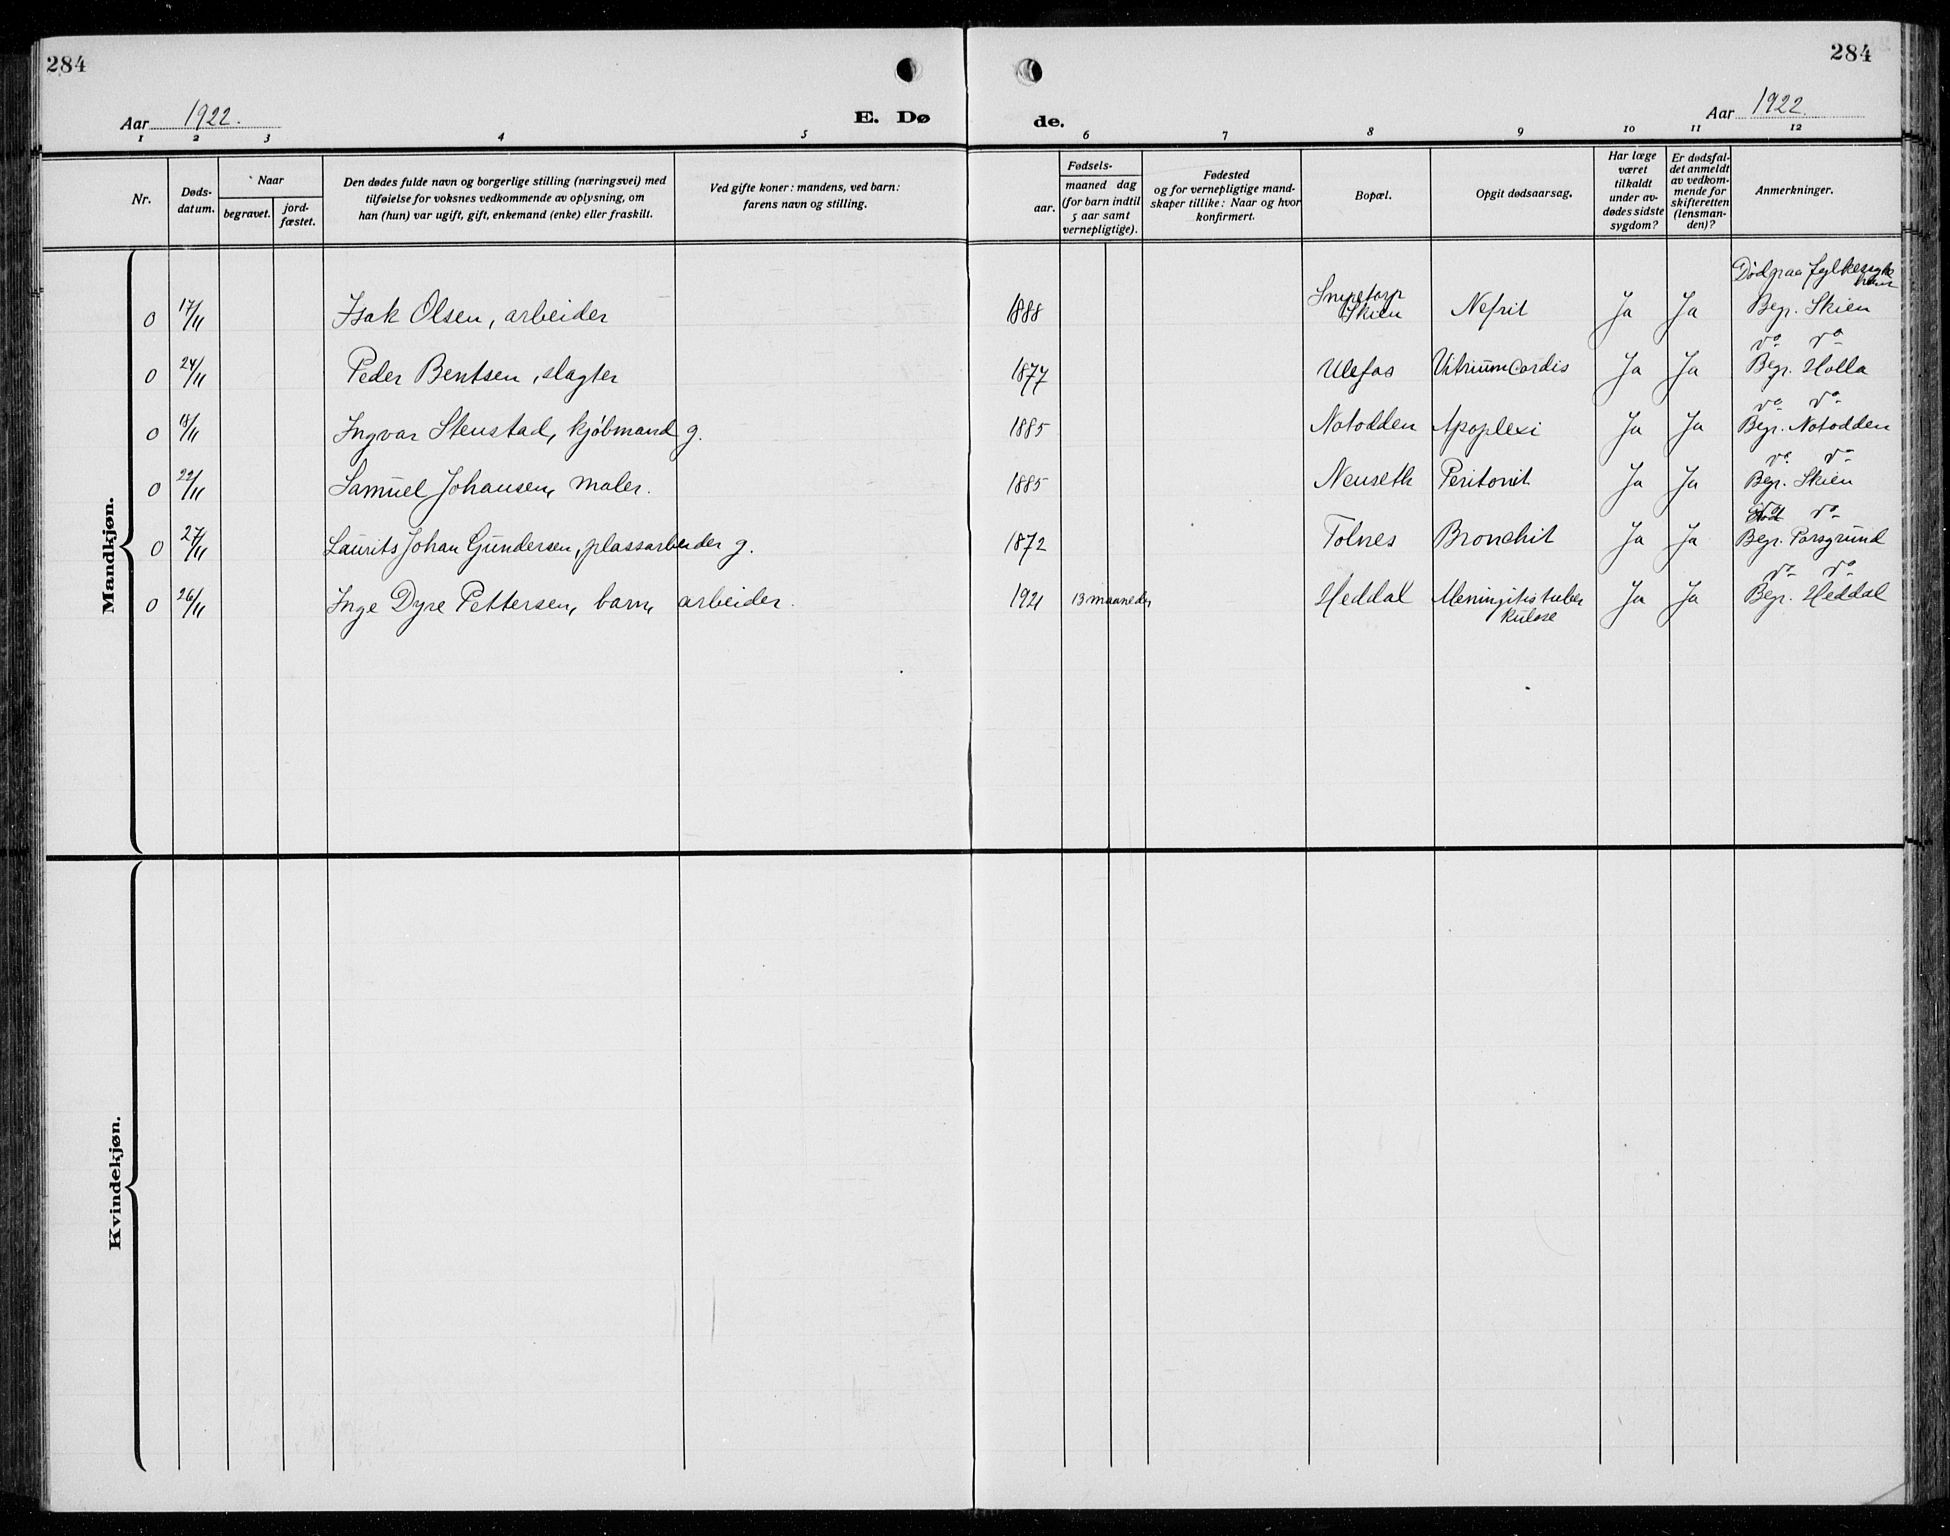 284
284
Aar 1922.
E. Dø
de.
Aar 1922
1 2 3 4 5 6 7 8 9 10 11 12
Nr.
Døds-
datum.
Naar
begravet.
jord-
fæstet.
Den dødes fulde navn og borgerlige stilling (næringsvei) med
tilføielse for voksnes vedkommende av oplysning, om
han (hun) var ugift, gift, enkemand (enke) eller fraskilt.
Ved gifte koner: mandens, ved barn:
farens navn og stilling.
Fødsels-
aar.
maaned dag
(for barn indtil
5 aar samt
vernepligtige).
Fødested
og for vernepligtige mand-
skaper tillike: Naar og hvor
konfirmert.
Bopæl.
Opgit dødsaarsag.
Har læge
været
tilkaldt
under av-
dødes sidste
sygdom?
Er dødsfal-
det anmeldt
av vedkom-
mende for
skifteretten
(lensman-
den)?
Anmerkninger.
Mandkjøn.
Død paa fylkessyke
hus
0 17/11 Isak Olsen, arbeider 1888 Snipetorp
Skien Nefrit Ja Ja Begr. Skien
do do
0 24/11 Peder Bentsen, slagter 1877 Ulefos Vitrium Cordis Ja Ja Begr. Holla
do do
0 18/11 Ingvar Stenstad, kjøbmand g. 1885 Notodden Apoplexi Ja Ja Begr. Notodden
do do
0 22/11 Samuel Johansen, maler. 1885 Nenseth Peritonit Ja Ja Begr. Skien
do do
0 27/11 Laurits Johan Gundersen, plassarbeider g. 1872 Tolnes Bronchit Ja Ja Begr. Porsgrund
do do
0 26/11 Inge Dyre Pettersen, barn, arbeider. 1921 13 maaneder Heddal Meningitis tuber
kulose Ja Ja Begr. Heddal
Kvindekjøn.